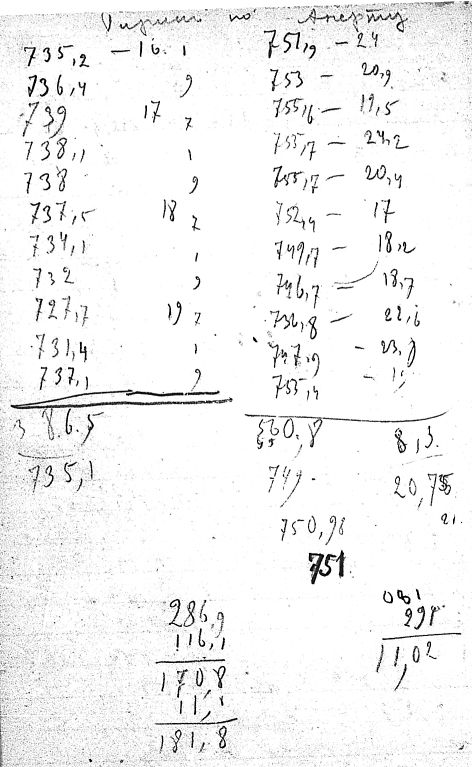 по Анероиду
735,2 — 16. 1 751,9 — 24
736,4 9 753 — 20,9
739 17 7 755,6 — 19,5
738,1 1 755,7 — 24,2
738 9 755,7 — 20,4
737,5 18 7 752,4 — 17
734,1 1 749,7 — 18,2
732 9 746,7 — 18,7
727,7 19 7 736,8 — 22,6
731,4 1 747,9 —
737,1 9 755,4 —
86.5 560,8 8,3
735,1 749. 20,75
21
750,98
751
286,9
116,1 298
170,8 11,02
11,1
181,8